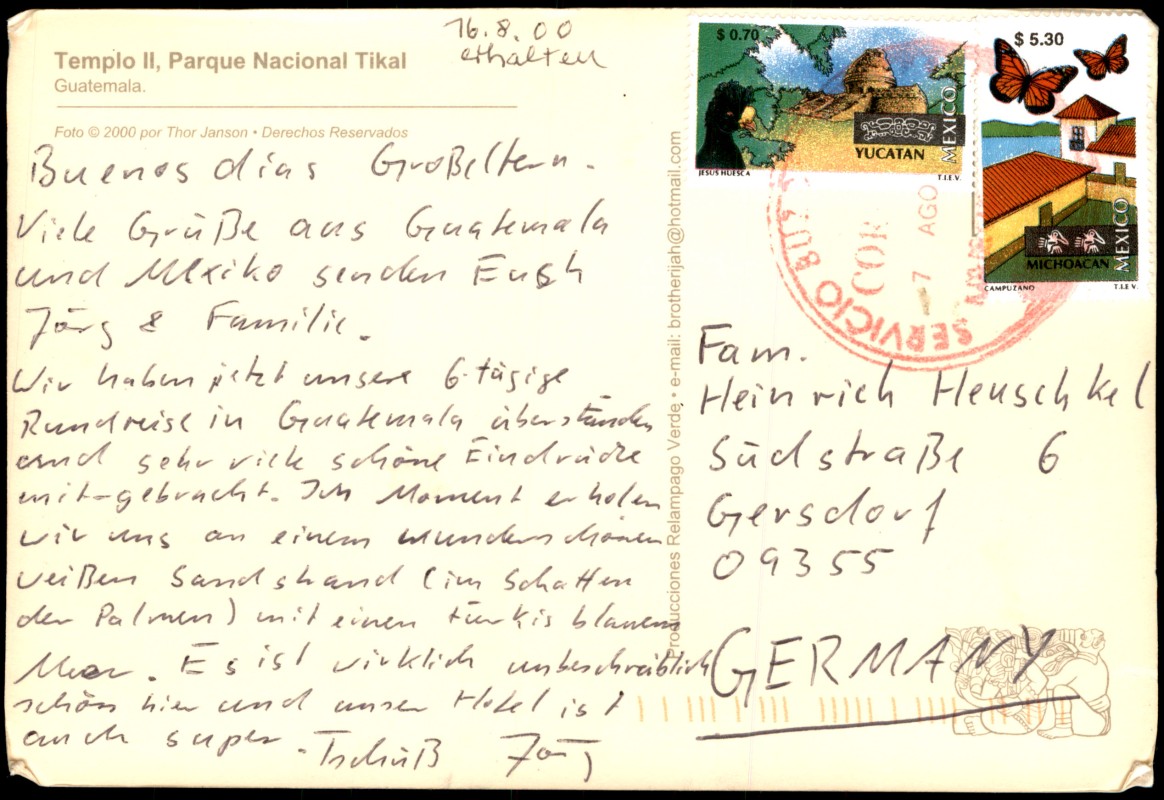 16.8.00
erhalten
Templo II, Parque Nacional Tikal
Guatemala.
Foto © 2000 por Thor Janson • Derechos Reservados
Buenos dias Großeltern.
Viele Grüße aus Guatemala
und Mexiko senden Euch
Jörg & Familie.
Wir haben jetzt unsere 6-tägige
Rundreise in Guatemala überstanden
und sehr viele schöne Eindrücke
mit-gebracht. Im Moment erholen
wir uns an einem wunderschönen
weißen Sandstrand (im Schatten
der Palmen) mit einen türkis blauem
Meer. Es ist wirklich unbeschreiblich
schön hier und unser Hotel ist
auch super. Tschüß Jörg
Producciones Relampago Verde, • e-mail: brotherijah@hotmail.com
$ 0.70
YUCATAN
MEXICO
JESUS HUESCA
T.I.E.V.
$ 5.30
MICHOACAN
MEXICO
CAMPUZANO
T.I.E.V.
SERVICIO
COR
7 AGO
Fam.
Heinrich Heuschkel
Südstraße 6
Gersdorf
09355
GERMANY